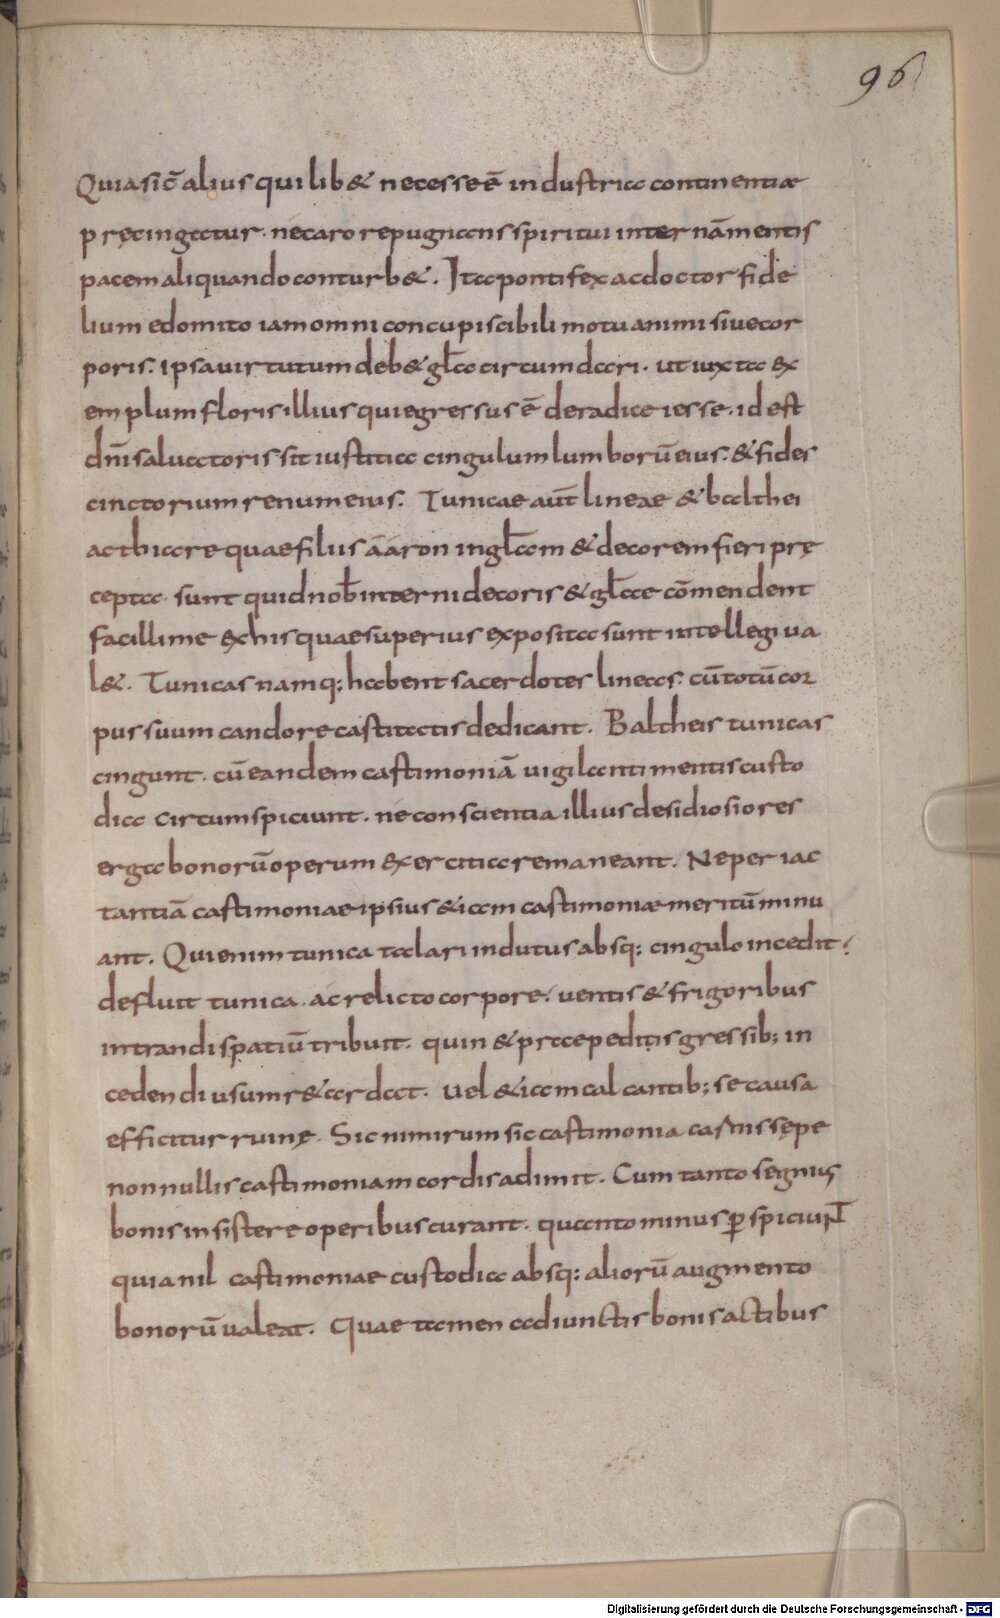 96
Quia sic̄ alius quilib& necesse ē industria continentiae
pręcingatur. ne caro repugnans spiritui internā mentis
pacem aliquando conturb&. Ita pontifex ac doctor fide
lium edomito iam omni concupiscibili motu animi siue cor
poris. ipsa uirtutum deb& gl̄a circumdari. ut iuxta ex
emplum floris illius qui egressus ē de radice iesse. id est
dn̄i saluatoris sit iustitia cingulum lumborū eius. & fides
cinctorium renum eius. Tunicae aūt lineae & balthei
ac thiare quae filiis aaron in gl̄am & decorem fieri prę
cepta sunt quid nob̄ interni decoris & gl̄ae cōmendent
facillime ex his quae superius exposita sunt intellegi ua
l&. Tunicas namq; habent sacerdotes lineas. cū totū cor
pus suum candore castitatis dedicant. Baltheis tunicas
cingunt. cū eandem castimoniā uigilanti mentis custo
dia circumspiciunt. ne conscientia illius desidiosiores
erga bonorū operum exercitia remaneant. Ne per iac
tantiā castimoniae ipsius &iam castimoniae meritū minu
ant. Qui enim tunica talari indutus absq; cingulo incedit.
defluit tunica. ac relicto corpore. uentis & frigoribus
intrandi spatiū tribuit. quin & praepeditis gressib; in
cedendi usum r&ardat. Uel &iam calcantib; se causa
efficitur ruinę. Sic nimirum sic castimonia carnis sępe
nonnullis castimoniam cordis adimit. Cum tanto segnius
bonis insistere operibus curant. quanto minus ꝑspiciunt
quia nil castimoniae custodia absq; aliorū augmento
bonorū ualeat. Quae tamen adiunctis bonis actibus
Digitalisierung gefördert durch die Deutsche Forschungsgemeinschaft - DFG